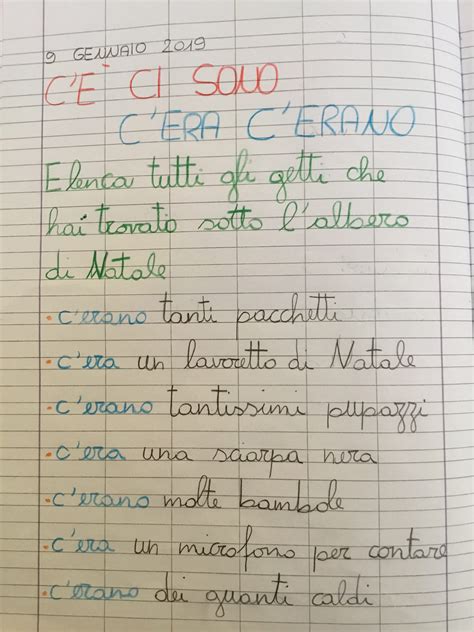 9 GENNAIO 2019
C'È CI SONO
C'ERA C'ERANO
Elenca tutti gli getti che
hai trovato sotto l'albero
di Natale
•c'erano tanti pacchetti
•c'era un lavoretto di Natale
•c'erano tantissimi pupazzi
•c'era una sciarpa nera
•c'erano molte bambole
•c'era un microfono per contare
•c'erano dei guanti caldi